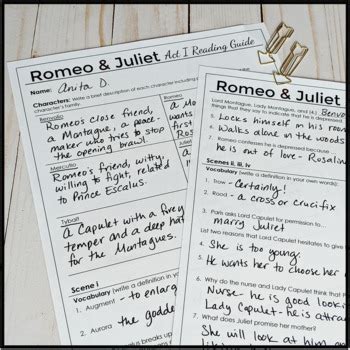 Romeo & Juliet Act I Reading Guide
Name: Anita D.
Characters: Write a brief description of each character including
Benvolio
Romeo's close friend,
a Montague, a peace-
maker who tries to stop
the opening brawl.
Mercutio
Romeo's friend, witty,
willing to fight, related
to Prince Escalus.
Tybalt
A Capulet with a firey
temper and a deep hat
for the Montagues.
Scene i
Vocabulary (write a definition in your
1. Augment - to enlarg
2. Aurora - the godde
Romeo
A Mon
wants
first
Ros
Romeo & Juliet
Lord Montague, Lady Montague, and (4.) Benvo
things they say to indicate that he is depressed.
5. Locks himself in his room
6. Walks alone in the woods
Romeo confesses he is depressed because
he is out of love - Rosalin
Scenes ii, iii, iv
Vocabulary (write a definition in your own words):
1. Trow - Certainly!
2. Rood - a cross or crucifix
3. Paris asks Lord Capulet for permission to...
marry Juliet
List two reasons that Lord Capulet hesitates to give
4. She is too young.
5. He wants her to choose her
Why do the nurse and Lady Capulet think that
Nurse - he is good look
Lady Capulet - he is attra
What does Juliet promise her mother?
She will look at him an